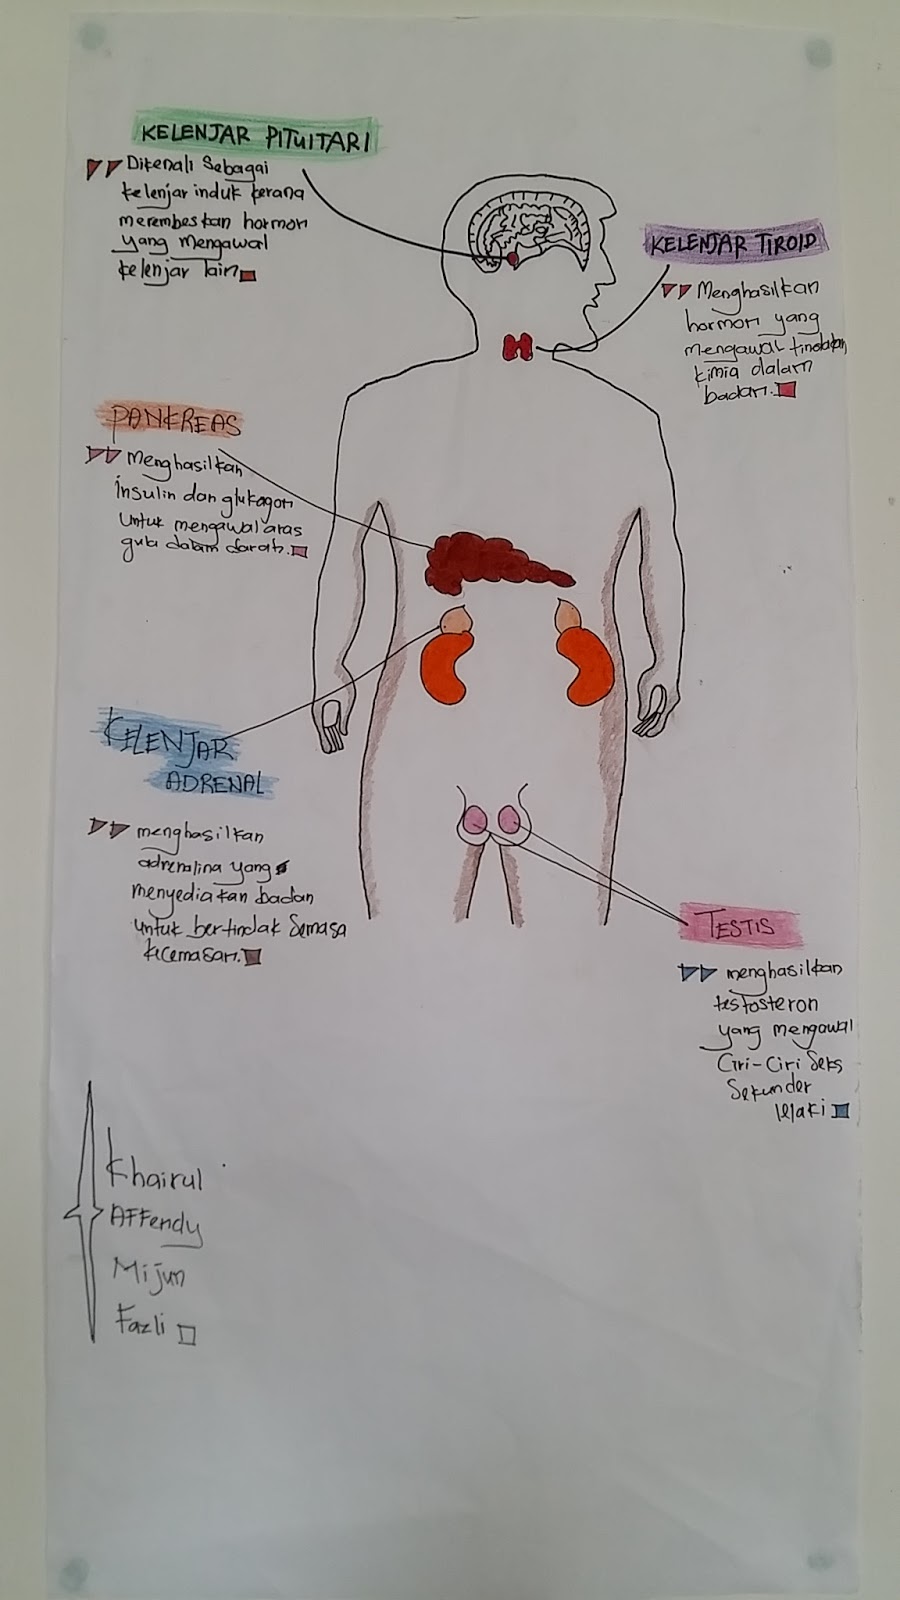 KELENJAR PITUITARI
Dikenali Sebagai
kelenjar induk kerana
merembeskan hormon
yang mengawal
kelenjar lain
KELENJAR TIROID
Menghasilkan
hormon yang
mengawal tindakan
kimia dalam
badan.
PANKREAS
Menghasilkan
insulin dan glukagon
untuk mengawal aras
gula dalam darah.
KELENJAR
ADRENAL
menghasilkan
adrenalina yang
menyediakan badan
untuk bertindak Semasa
kecemasan.
TESTIS
menghasilkan
testosteron
yang mengawal
Ciri-Ciri Seks
Sekunder
lelaki
Khairul
AFFendy
Mijun
Fazli